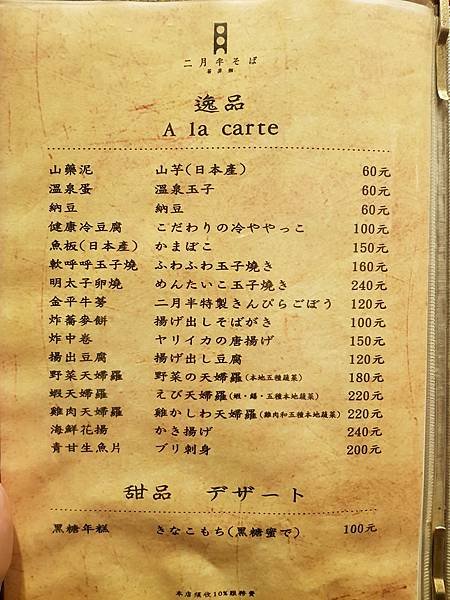 二月半そば
蕎麥麵
逸品
A la carte
山藥泥 山芋(日本產) 60元
溫泉蛋 溫泉玉子 60元
納豆 納豆 60元
健康冷豆腐 こだわりの冷ややっこ 100元
魚板(日本產) かまぼこ 150元
軟呼呼玉子燒 ふわふわ玉子燒き 160元
明太子卵燒 めんたいこ玉子燒き 240元
金平牛蒡 二月半特製きんぴらごぼう 120元
炸蕎麥餅 揚げ出しそばがき 100元
炸中卷 ヤリイカの唐揚げ 150元
揚出豆腐 揚げ出し豆腐 120元
野菜天婦羅 野菜の天婦羅(本地五種蔬菜) 180元
蝦天婦羅 えび天婦羅(蝦・鱚・五種本地蔬菜) 220元
雞肉天婦羅 雞かしわ天婦羅(雞肉和五種本地蔬菜) 220元
海鮮花揚 かき揚げ 240元
青甘生魚片 ブリ刺身 200元
甜品 デザート
黑糖年糕 きなこもち(黑糖蜜で) 100元
本店須收10%服務費